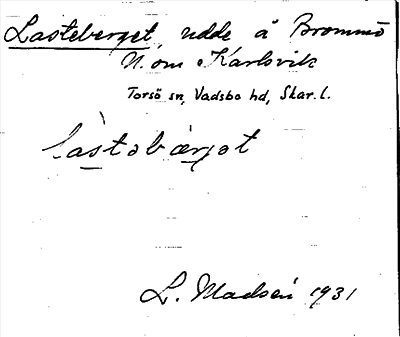 Lasteberget, udde å Brommö
N. om Karlsvik
Torsö sn, Vadsbo hd, Skar. l.
làstobærjot
L. Madsén 1931